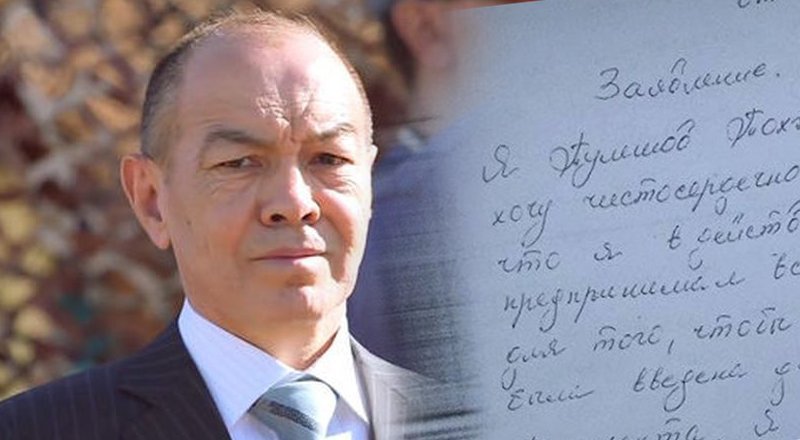 Заявление.
Я Тулешов Тох
хочу чистосердечно
что я в действ
предпринимал вс
для того, чтобы
была введена д